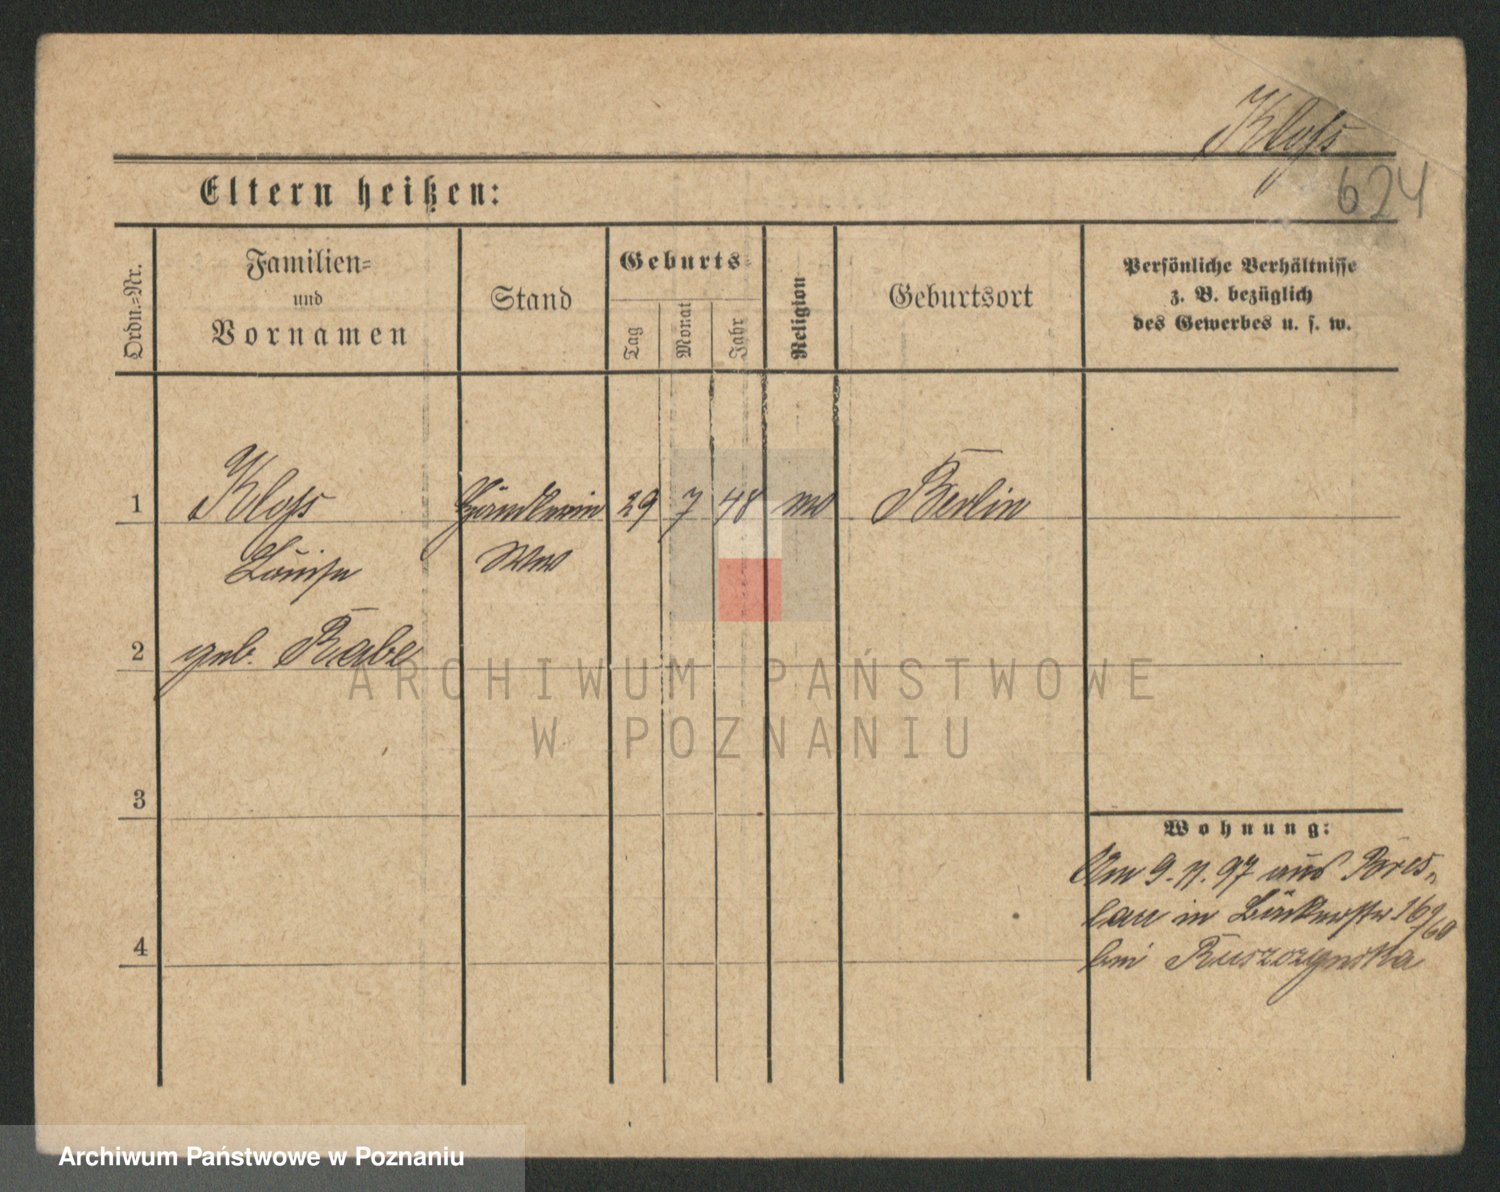 Kloss
624
Eltern heißen:
Ordn.-Nr.
Familien-
und
Vornamen
Stand
Geburts-
Tag
Monat
Jahr
Religion
Geburtsort
Persönliche Verhältnisse
z. B. bezüglich
des Gewerbes u. s. w.
1 Kloss Händlerin 29 7 48 Berlin
Louise Wwe
2 geb. Rabe
3
4
Wohnung:
Am 9. 11. 97 aus Bres-
lau in Bäckerstr
bei Ruszczynska
ARCHIWUM PAŃSTWOWE
W POZNANIU
Archiwum Państwowe w Poznaniu